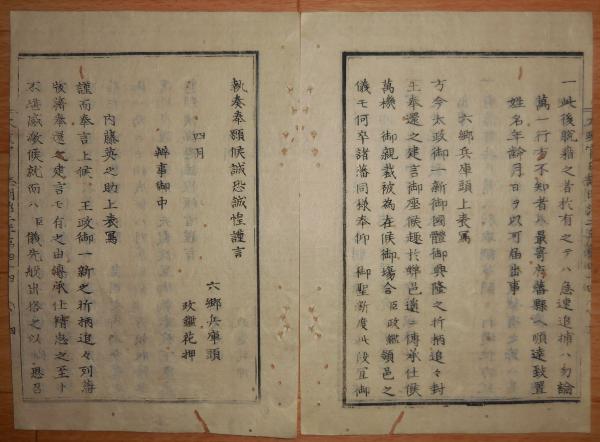 一此後脱籍之者於有之テハ急速追捕ハ勿論
萬一行方不知者ハ最寄府藩縣ヘ順達致置
姓名年齢月日ヲ以可届出事
六郷兵庫頭上表寫
方今太政御一新御國體御興隆之折柄追々封
土奉還之建言御座候趣於弊邑遥ニ傳承仕候
萬機 御親裁被為在候御場合 臣政鑑領邑之
儀モ何卒諸藩同様奉仰 御聖断度此段宜御
執奏奉願候誠恐誠惶謹言
六郷兵庫頭
四月 政鑑花押
辨事御中
内藤英之助上表寫
謹而奉言上候 王政御一新之折柄追々列藩
版籍奉還之建言モ有之由傳承仕精忠之至ト
不堪感激候就而ハ臣儀先般出格之以